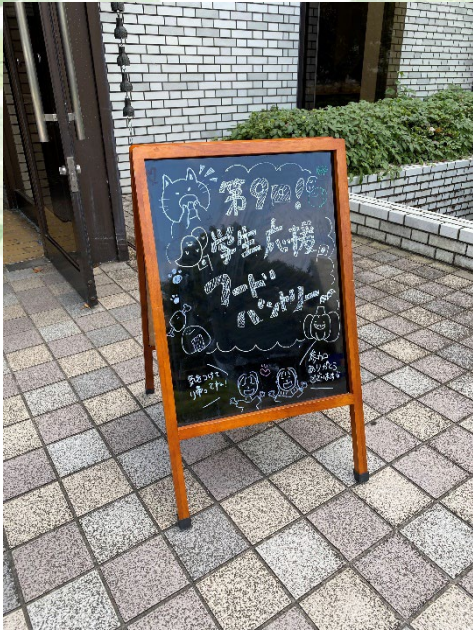 第9回!!
学生応援
フードパントリー
気をつけて
帰ってね!
参加
ありがとう
ございます